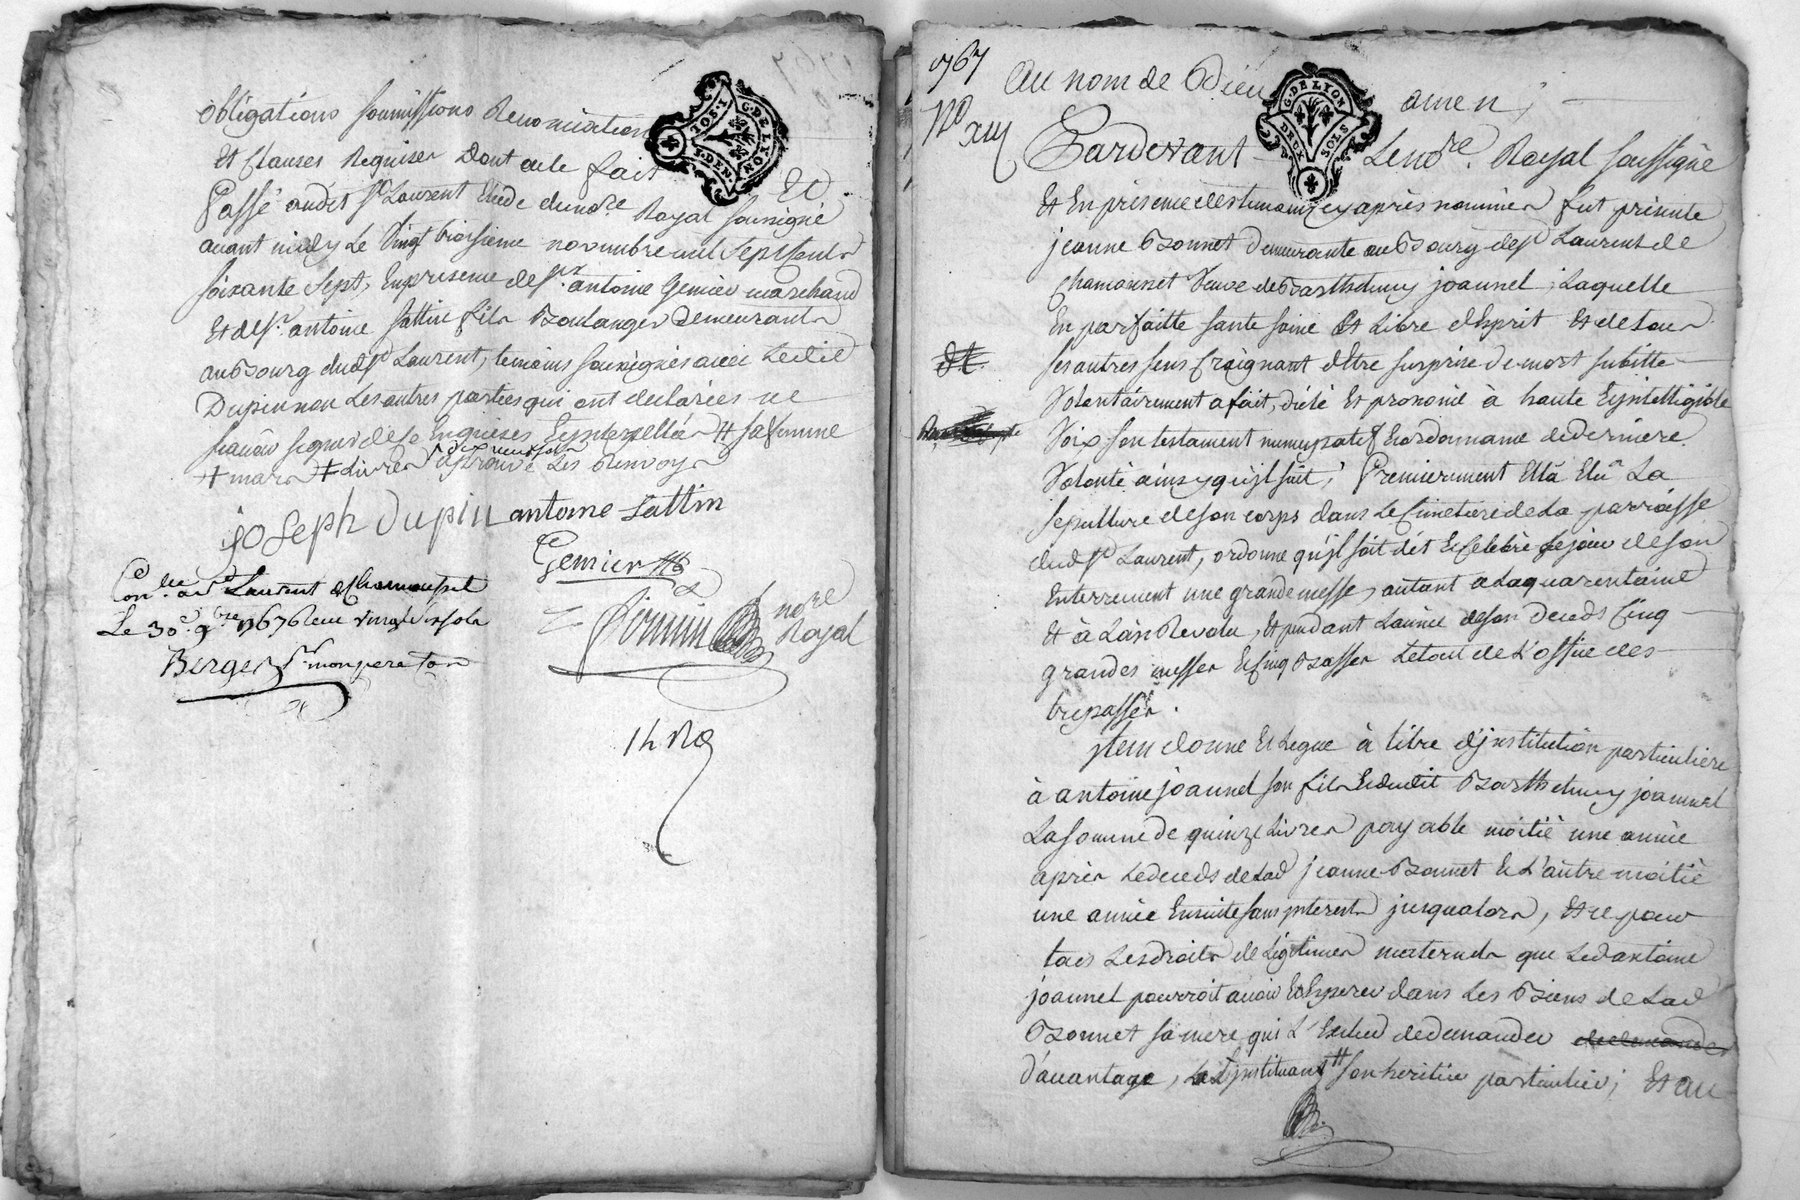 obligations soumissions Renonciation
Et Clauses Requises Dont acte fait
G. DE LYON
DEN.
Et
Passé audit St Laurent Etude dud nore Royal soussigné
avant midy Le Vingt troisieme novembre mil sept cents
soixante sept, En presence de sr antoine Gemier marchand
Et de sr. antoine fattin fils Boulanger Demeurants
au Bourg dud st Laurent, temoins soussignés avec Ledit
Dupin non Les autres parties qui ont declarées ne
scavoir signer de ce Enquises Et interpellées # sa femme
+ mars ‡ Livres dix neuf sols aprouvé Les Renvoys
joseph dupin antoine fattin
Gemier
Con.lle a st Laurent de Chamousset
Le 30e 9bre 1767 Reçu vingt six sols
Berger pr mon pere
nore
Royal
1767
No xiii
Au nom de Dieu
amen ;
G. DE LYON
DEUX SOLS
Pardevant Le nore. Royal soussigné
Et En présence des temoins cy après nommés fut présente
jeanne Bonnet Demeurante au Bourg de st Laurent de
Chamousset Veuve de Barthelemy joannel ; Laquelle
En parfaitte santé saine Et Libre d'Esprit Et de tous
ses autres sens Craignant d'Etre surprise de mort subitte
Volontairement a fait, dicté Et prononcé à haute Et jntelligible
Voix son testament nuncupatif Et ordonnance de derniere
Volonté ainsy qu'jl suit ; Premierement Elle a Elu La
sepulture de son corps dans Le Cimetiere de La parroisse
dud st Laurent, ordonne qu'jl soit dit Et Celebré Le jour de son
Enterrement une grande messe, autant a La quarentaine
Et à L'an Revolu, Et pendant L'année de son Deceds Cinq
grandes messes Et Cinq Basses Le tout de L'office des
trepassés.
jtem donne Et Legue à titre d'jnstitution particuliere
à antoine joannel son fils Et dudit Barthelemy joannel
La somme de quinze Livres payable moitié une année
après Le deceds de Lad jeanne Bonnet Et L'autre moitié
une année Ensuite sans jnterests jusqu'alors, Et ce pour
tous Les droits de Legitimes maternels que Led antoine
joannel pourroit avoir Et Esperer dans Les Biens de Lad
Bonnet sa mere qui L'Exclud de demander
d'avantage, L'jnstituant # son heritier particulier ; Et au